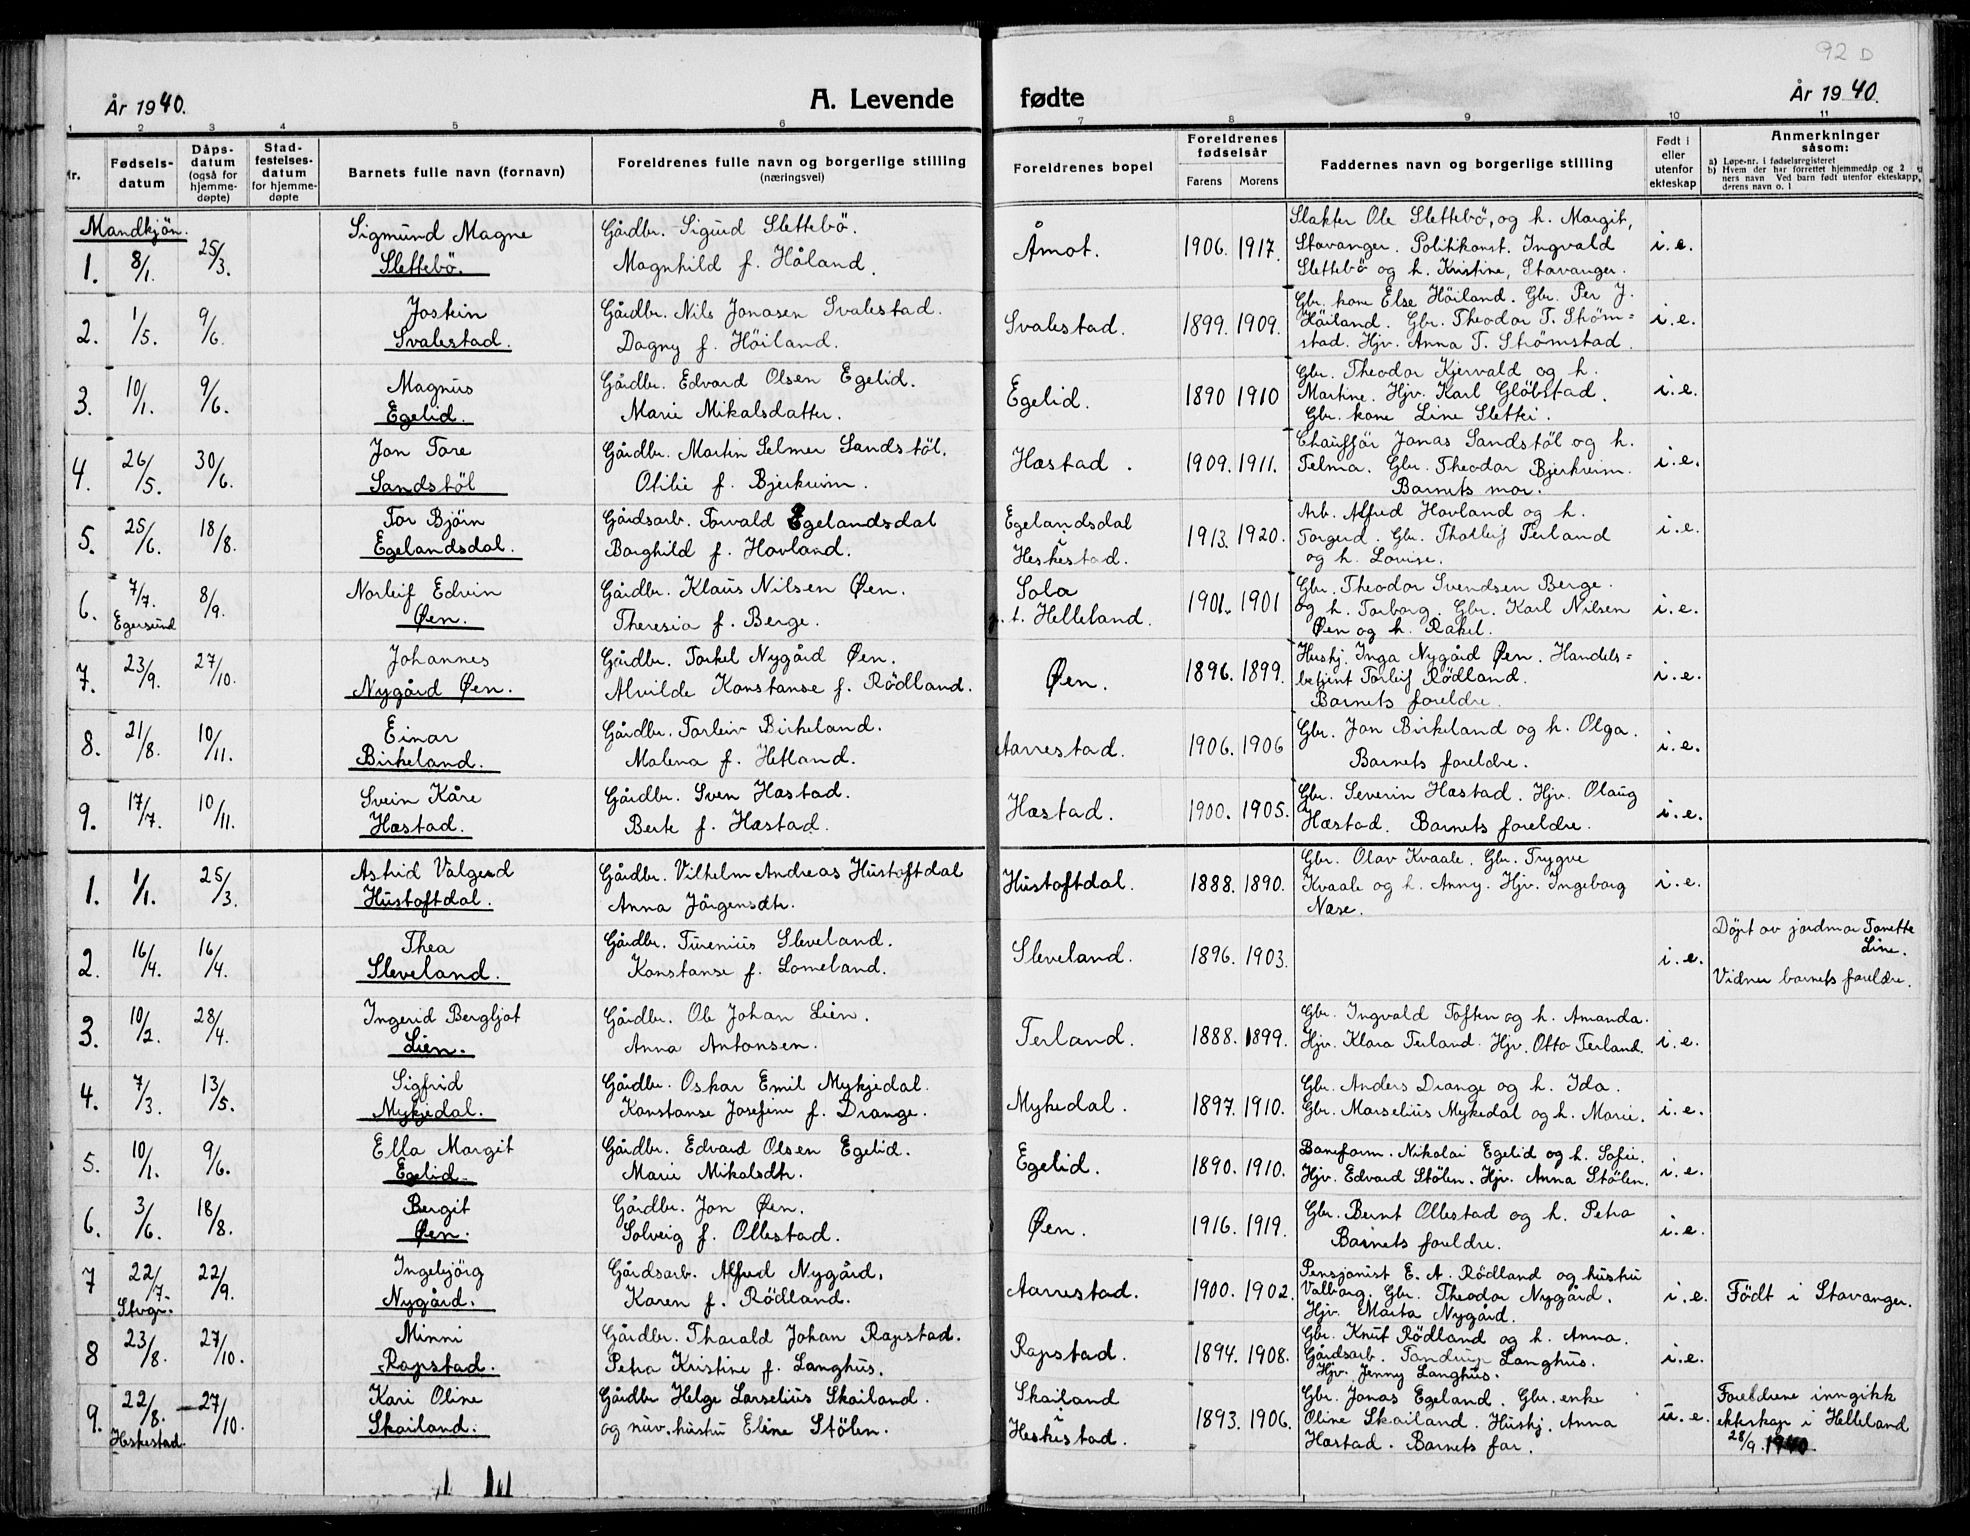 92 D
År 1940.
A. Levende fødte
År 1940.
1 2 3 4 5 6 7 8 9 10 11
Nr.
Fødsels-
datum
Dåps-
datum
(også for
hjemme-
døpte)
Stad-
festelses-
datum
for hjemme-
døpte
Barnets fulle navn (fornavn)
Foreldrenes fulle navn og borgerlige stilling
(næringsvei)
Foreldrenes bopel
Foreldrenes
fødselsår
Farens Morens
Faddernes navn og borgerlige stilling
Født i
eller
utenfor
ekteskap
Anmerkninger
såsom:
a) Løpe-nr. i fødselsregisteret
b) Hvem der har forrettet hjemmedåp og 2
ners navn Ved barn født utenfor ekteskapp,
derens navn o. l
Mandkjön.
1. 8/1. 25/3.
Sigmund Magne
Slettebö.
Gårdbr. Sigurd Slettebö.
Magnhild f. Håland.
Åmot.
1906. 1917.
Slakter Ole Slettebö, og h. Margit,
Stavanger. Politikonst. Ingvald
Slettebö og h. Kristine, Stavanger.
i. e.
2. 1/5. 9/6.
Jostein
Svalestad.
Gårdbr. Nils Jonasen Svalestad.
Dagny f. Höiland.
Svalestad.
1899. 1909.
Gbr. kone Else Höiland. Gbr. Per J.
Höiland. Gbr. Theodor T. Strøm=
stad. Hjv. Anna T. Strømstad.
i. e.
3. 10/1. 9/6.
Magnus
Egelid.
Gårdbr. Edvard Olsen Egelid.
Marie Mikalsdatter.
Egelid.
1890 1910
Gbr. Theodor Kjervald og h.
Martine. Hjv. Karl Glöbstad.
Gbr. kone Line Slettei
i. e.
4. 26/5. 30/6.
Jon Tore
Sandstöl
Gårdbr. Martin Selmer Sandstöl.
Otilie f. Bjerkreim.
Hæstad.
1909. 1911.
Chaufför Jonas Sandstöl og h.
Telma. Gbr. Theodor Bjerkreim.
Barnets mor.
i. e.
5. 25/6. 18/8.
Tor Björn
Egelandsdal.
Gårdsarb. Torvald Egelandsdal
Borghild f. Hovland.
Egelandsdal
i
Heskestad.
1913. 1920.
Arb. Alfred Hovland og h.
Torgerd. Gbr. Thorleif Terland
og h. Lovise.
i. e.
6. 7/7. 8/9.
Egersund
Norleif Edvin
Øen.
Gårdbr. Klaus Nilsen Øen.
Theresia f. Berge.
Sola
p. t. Helleland.
1901. 1901
Gbr. Theodor Svendsen Berge.
og h. Torborg. Gbr. Karl Nilsen
Øen og h. Rakel.
i. e.
7. 23/9. 27/10.
Johannes
Nygård Øen.
Gårdbr. Torkel Nygård Øen.
Alvilde Konstanse f. Rödland.
Øen.
1896. 1899.
Hushj. Inga Nygård Øen. Handels=
betjent Torleif Rödland.
Barnets foreldre.
i. e.
8. 21/8. 10/11.
Einar
Birkeland.
Gårdbr. Torleiv Birkeland.
Malena f. Hetland.
Aarrestad.
1906. 1906
Gbr. Jon Birkeland og h. Olga.
Barnets foreldre.
i. e.
9. 17/7. 10/11.
Svein Kåre
Hæstad.
Gårdbr. Sven Hæstad.
Berte f. Hæstad.
Hæstad.
1900. 1905.
Gbr. Severin Hæstad. Hjv. Olaug
Hæstad. Barnets foreldre.
i. e.
1. 1/1. 25/3.
Astrid Valgerd
Hustoftdal.
Gårdbr. Vilhelm Andreas Hustoftdal
Anna Jörgensdtr.
Hustoftdal.
1888. 1890.
Gbr. Olav Kvaale. Gbr. Trygve
Kvaale og h. Anny. Hjv. Ingeborg
Næse.
i. e.
2. 16/4. 16/4.
Thea
Sleveland.
Gårdbr. Turenius Sleveland.
Konstanse f. Lomeland.
Sleveland.
1896. 1903.
i. e.
Döpt av jordmor Tonette
Line.
Vidner barnets foreldre.
3. 10/2. 28/4.
Ingerid Bergljot
Lien.
Gårdbr. Ole Johan Lien.
Anna Antonsen.
Terland.
1888. 1899.
Gbr. Ingvald Toften og h. Amanda.
Hjv. Klara Terland. Hjv. Otto Terland.
i. e.
4. 7/3. 13/5.
Sigfrid
Mykjedal.
Gårdbr. Oskar Emil Mykjedal.
Konstanse Josefine f. Drange.
Mykedal.
1897. 1910.
Gbr. Anders Drange og h. Ida.
Gbr. Marselius Mykedal og h. Marie.
i. e.
5. 10/1. 9/6.
Ella Margit
Egelid.
Gårdbr. Edvard Olsen Egelid.
Marie Mikalsdtr.
Egelid.
1890. 1910.
Baneform. Nikolai Egelid og h. Sofie.
Hjv. Edvard Stölen. Hjv. Anna Stölen.
i. e.
6. 3/6. 18/8.
Bergit
Øen.
Gårdbr. Jon Øen.
Solveig f. Ollestad.
Øen.
1916. 1919.
Gbr. Bernt Ollestad og h. Petra
Barnets foreldre.
i. e.
7 22/7. 22/9.
Stvgr.
Ingebjörg
Nygård.
Gårdsarb. Alfred Nygård.
Karen f. Rödland.
Aarrestad.
1900. 1902.
Pensjonist E. A. Rödland og hustru
Valborg. Gbr. Theodor Nygård.
Hjv. Marta Nygård.
i. e.
Födt i Stavanger.
8 23/8. 27/10.
Minni
Rapstad.
Gårdbr. Tharald Johan Rapstad.
Petra Kristine f. Langhus.
Rapstad.
1894. 1908.
Gbr. Knut Rödland og h. Anna.
Gårdsarb. Tandrup Langhus.
Hjv. Jenny Langhus.
i. e.
9. 22/8. 27/10.
Heskestad.
Kari Oline
Skailand.
Gårdbr Helge Larselius Skailand.
og nuv. hustru Eline Stölen.
Skailand
i
Heskestad.
1893. 1906.
Gbr. Jonas Egeland. Gbr. enke
Oline Skailand. Hushj. Anna
Hæstad. Barnets far.
u. e.
Foreldrene inngikk
ekteskap i Helleland
28/9. 1940.